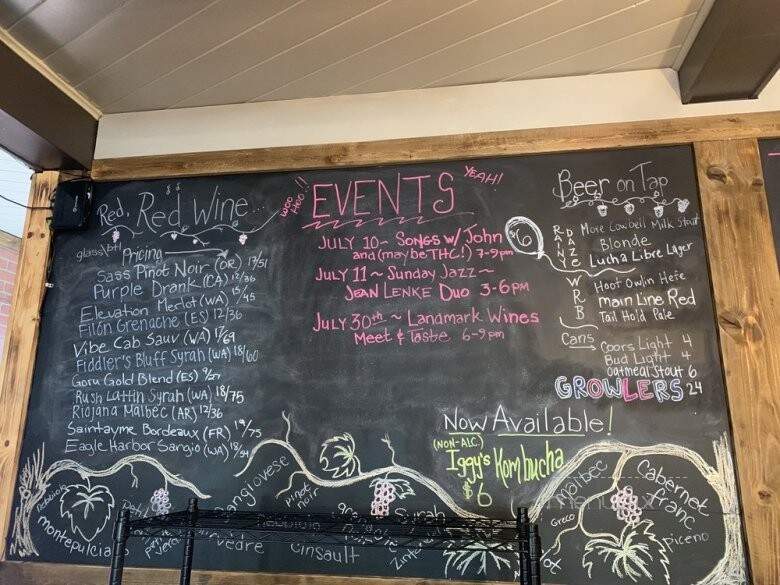 Red, Red Wine...
$$
glass\btl
Pricing
Sass Pinot Noir (OR) 17/51
Purple Drank (CA) 12/36
Elevation Merlot (WA) 15/45
Filón Grenache (ES) 12/36
Vibe Cab Sauv (WA) 17/69
Fiddler's Bluff Syrah (WA) 18/60
Goru Gold Blend (ES) 9/27
Rush Lattin Syrah (WA) 18/75
Riojana Malbec (AR) 12/36
Saintayme Bordeaux (FR) 19/75
Eagle Harbor Sangio (WA) 18/54
WOO HOO!!
EVENTS
YEAH!
JULY 10 ~ SONGS W/ John
and (maybe THC!) 7-9pm
JULY 11 ~ Sunday Jazz ~
JEAN LENKE Duo 3-6 PM
JULY 30th ~ Landmark Wines
Meet & Taste 6-9pm
Beer on Tap
$6
RANY
DAZE
More Cowbell Milk Stout
Blonde
Lucha Libre Lager
WRB
Hoot Owlin Hefe
main Line Red
Tail Hold Pale
Cans
Coors Light 4
Bud Light 4
oatmeal Stout 6
GROWLERS 24
Now Available!
(NON-ALC.)
Iggy's Kombucha
$6
montepulciano
sangiovese
pinot noir
Syrah
Cinsault
malbec
Cabernet
franc
Greco
piceno